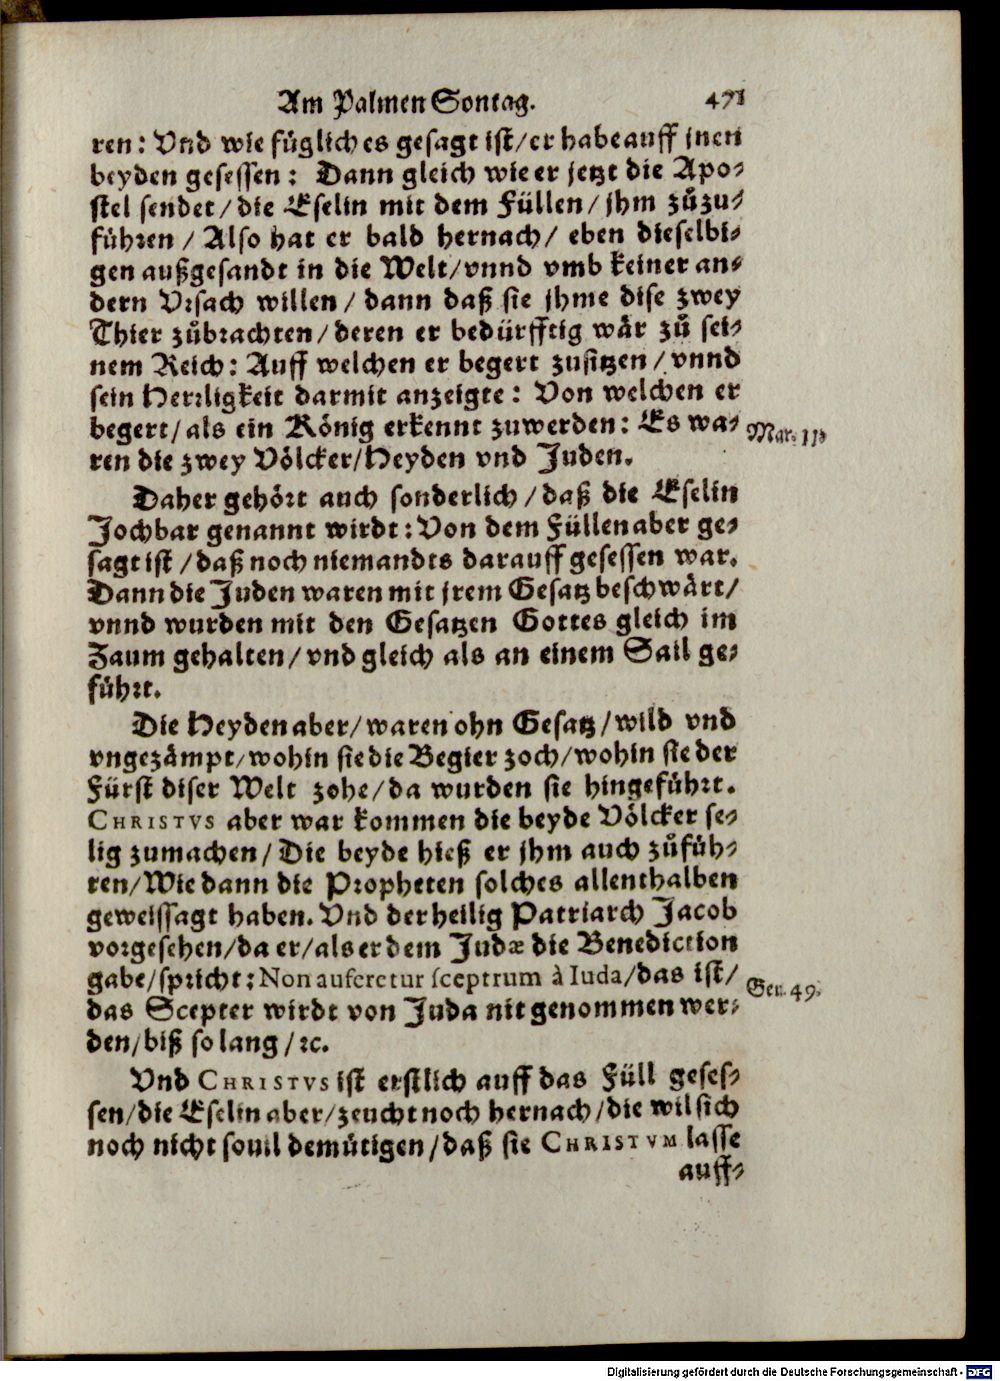 Am Palmen Sontag. 471
ren: Vnd wie füglich es gesagt ist/er habe auff jnen
beyden gesessen: Dann gleich wie er jetzt die Apo-
stel sendet/die Eselin mit dem Füllen/jhm zůzu-
führen/Also hat er bald hernach/eben dieselbi-
gen außgesandt in die Welt/vnnd vmb keiner an-
dern Vrsach willen/dann daß sie jhme dise zwey
Thier zůbrachten/deren er bedürfftig wär zů sei-
nem Reich: Auff welchen er begert zusitzen/vnnd
sein Herrligkeit darmit anzeigte: Von welchen er
begert/als ein König erkennt zuwerden: Es wa-
Mar. 11
ren die zwey Völcker/Heyden vnd Juden.
Daher gehört auch sonderlich/daß die Eselin
Jochbar genannt wirdt: Von dem Füllen aber ge-
sagt ist/daß noch niemandts darauff gesessen war.
Dann die Juden waren mit jrem Gesatz beschwärt/
vnnd wurden mit den Gesatzen Gottes gleich im
Zaum gehalten/vnd gleich als an einem Sail ge-
führt.
Die Heyden aber/waren ohn Gesatz/wild vnd
vngezämpt/wohin sie die Begier zoch/wohin sie der
Fürst diser Welt zohe/da wurden sie hingeführt.
CHRISTVS aber war kommen die beyde Völcker se-
lig zumachen/Die beyde hieß er jhm auch zůfüh-
ren/Wie dann die Propheten solches allenthalben
geweissagt haben. Vnd der heilig Patriarch Jacob
vorgesehen/da er/als er dem Judæ die Benediction
gabe/spricht: Non auferetur sceptrum à Iuda/das ist/
Gen. 49.
das Scepter wirdt von Juda nit genommen wer-
den/biß so lang/ꝛc.
Vnd CHRISTVS ist erstlich auff das Füll geses-
sen/die Eselin aber/zeucht noch hernach/die wil sich
noch nicht souil demütigen/daß sie CHRISTVM lasse
auff-
Digitalisierung gefördert durch die Deutsche Forschungsgemeinschaft - DFG